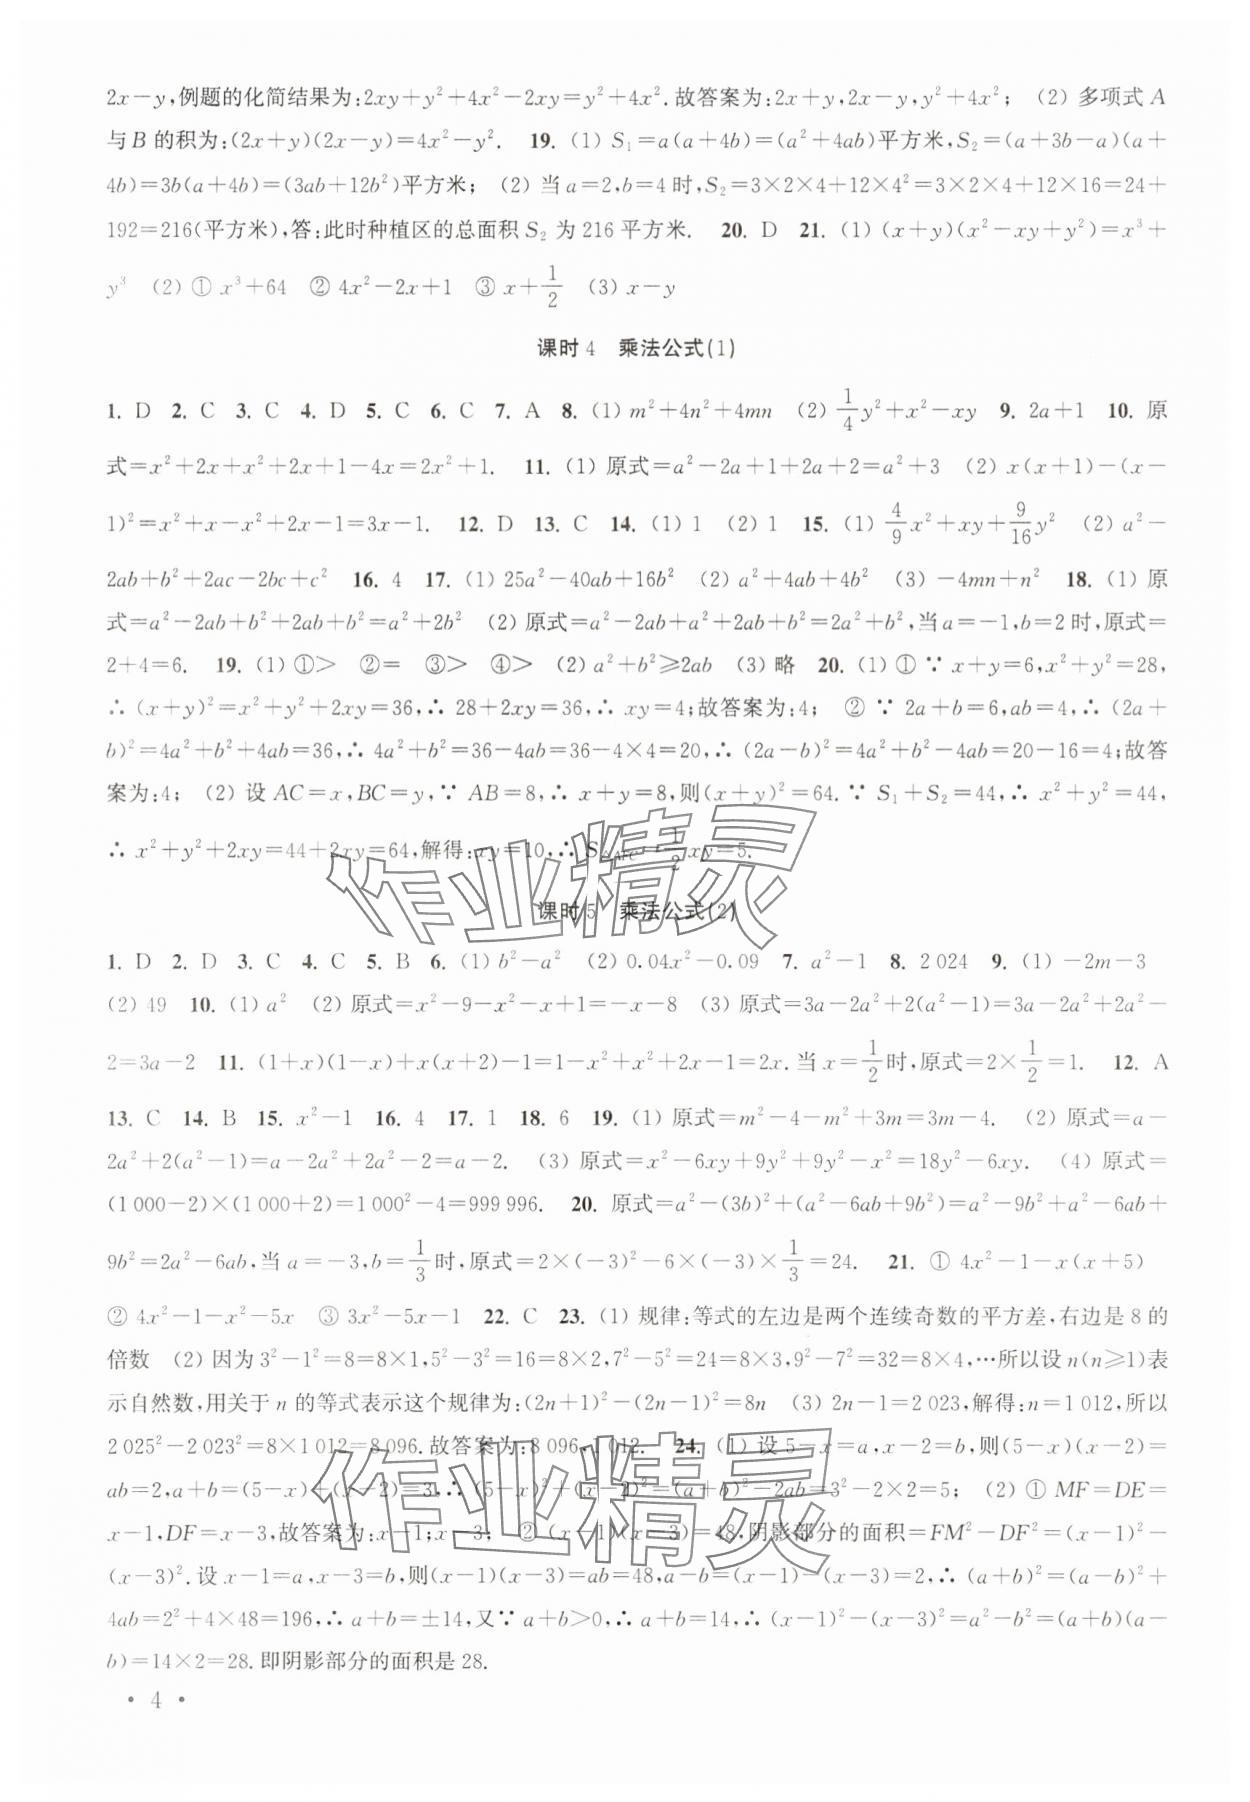 2x－y,例题的化简结果为:2xy＋y²＋4x²－2xy＝y²＋4x².故答案为:2x＋y,2x－y,y²＋4x²; (2) 多项式 A
与 B 的积为:(2x＋y)(2x－y)＝4x²－y². 19. (1) S₁＝a(a＋4b)＝(a²＋4ab)平方米,S₂＝(a＋3b－a)(a＋
4b)＝3b(a＋4b)＝(3ab＋12b²)平方米; (2) 当 a＝2,b＝4 时,S₂＝3×2×4＋12×4²＝3×2×4＋12×16＝24＋
192＝216(平方米),答:此时种植区的总面积 S₂ 为 216 平方米. 20. D 21. (1) (x＋y)(x²－xy＋y²)＝x³＋
y³ (2) ① x³＋64 ② 4x²－2x＋1 ③ x＋1/2 (3) x－y
课时 4 乘法公式(1)
1. D 2. C 3. C 4. D 5. C 6. C 7. A 8. (1) m²＋4n²＋4mn (2) 1/4y²＋x²－xy 9. 2a＋1 10. 原
式＝x²＋2x＋x²＋2x＋1－4x＝2x²＋1. 11. (1) 原式＝a²－2a＋1＋2a＋2＝a²＋3 (2) x(x＋1)－(x－
1)²＝x²＋x－x²＋2x－1＝3x－1. 12. D 13. C 14. (1) 1 (2) 1 15. (1) 4/9x²＋xy＋9/16y² (2) a²－
2ab＋b²＋2ac－2bc＋c² 16. 4 17. (1) 25a²－40ab＋16b² (2) a²＋4ab＋4b² (3) －4mn＋n² 18. (1) 原
式＝a²－2ab＋b²＋2ab＋b²＝a²＋2b² (2) 原式＝a²－2ab＋a²＋2ab＋b²＝2a²＋b²,当 a＝－1,b＝2 时,原式＝
2＋4＝6. 19. (1) ①＞ ②＝ ③＞ ④＞ (2) a²＋b²≥2ab (3) 略 20. (1) ① ∵ x＋y＝6,x²＋y²＝28,
∴ (x＋y)²＝x²＋y²＋2xy＝36,∴ 28＋2xy＝36,∴ xy＝4;故答案为:4; ② ∵ 2a＋b＝6,ab＝4,∴ (2a＋
b)²＝4a²＋b²＋4ab＝36,∴ 4a²＋b²＝36－4ab＝36－4×4＝20,∴ (2a－b)²＝4a²＋b²－4ab＝20－16＝4;故答
案为:4; (2) 设 AC＝x,BC＝y,∵ AB＝8,∴ x＋y＝8,则(x＋y)²＝64.∵ S₁＋S₂＝44,∴ x²＋y²＝44,
∴ x²＋y²＋2xy＝44＋2xy＝64,解得:xy＝10,∴ S△AFC＝1/2xy＝5.
课时 5 乘法公式(2)
1. D 2. D 3. C 4. C 5. B 6. (1) b²－a² (2) 0.04x²－0.09 7. a²－1 8. 2 024 9. (1) －2m－3
(2) 49 10. (1) a² (2) 原式＝x²－9－x²－x＋1＝－x－8 (3) 原式＝3a－2a²＋2(a²－1)＝3a－2a²＋2a²－
2＝3a－2 11. (1＋x)(1－x)＋x(x＋2)－1＝1－x²＋x²＋2x－1＝2x.当 x＝1/2时,原式＝2×1/2＝1. 12. A
13. C 14. B 15. x²－1 16. 4 17. 1 18. 6 19. (1) 原式＝m²－4－m²＋3m＝3m－4. (2) 原式＝a－
2a²＋2(a²－1)＝a－2a²＋2a²－2＝a－2. (3) 原式＝x²－6xy＋9y²＋9y²－x²＝18y²－6xy. (4) 原式＝
(1 000－2)×(1 000＋2)＝1 000²－4＝999 996. 20. 原式＝a²－(3b)²＋(a²－6ab＋9b²)＝a²－9b²＋a²－6ab＋
9b²＝2a²－6ab,当 a＝－3,b＝1/3时,原式＝2×(－3)²－6×(－3)×1/3＝24. 21. ① 4x²－1－x(x＋5)
② 4x²－1－x²－5x ③ 3x²－5x－1 22. C 23. (1) 规律:等式的左边是两个连续奇数的平方差,右边是 8 的
倍数 (2) 因为 3²－1²＝8＝8×1,5²－3²＝16＝8×2,7²－5²＝24＝8×3,9²－7²＝32＝8×4,…所以设 n(n≥1)表
示自然数,用关于 n 的等式表示这个规律为:(2n＋1)²－(2n－1)²＝8n (3) 2n－1＝2 023,解得:n＝1 012,所以
2 025²－2 023²＝8×1 012＝8 096.故答案为:8 096,1 012. 24. (1) 设 5－x＝a,x－2＝b,则(5－x)(x－2)＝
ab＝2,a＋b＝(5－x)＋(x－2)＝3,∴ (5－x)²＋(x－2)²＝(a＋b)²－2ab＝3²－2×2＝5; (2) ① MF＝DE＝
x－1,DF＝x－3,故答案为:x－1;x－3; ② (x－1)(x－3)＝48,阴影部分的面积＝FM²－DF²＝(x－1)²－
(x－3)².设 x－1＝a,x－3＝b,则(x－1)(x－3)＝ab＝48,a－b＝(x－1)－(x－3)＝2,∴ (a＋b)²＝(a－b)²＋
4ab＝2²＋4×48＝196,∴ a＋b＝±14,又∵ a＋b＞0,∴ a＋b＝14,∴ (x－1)²－(x－3)²＝a²－b²＝(a＋b)(a－
b)＝14×2＝28.即阴影部分的面积是 28.
• 4 •
作业精灵
作业精灵